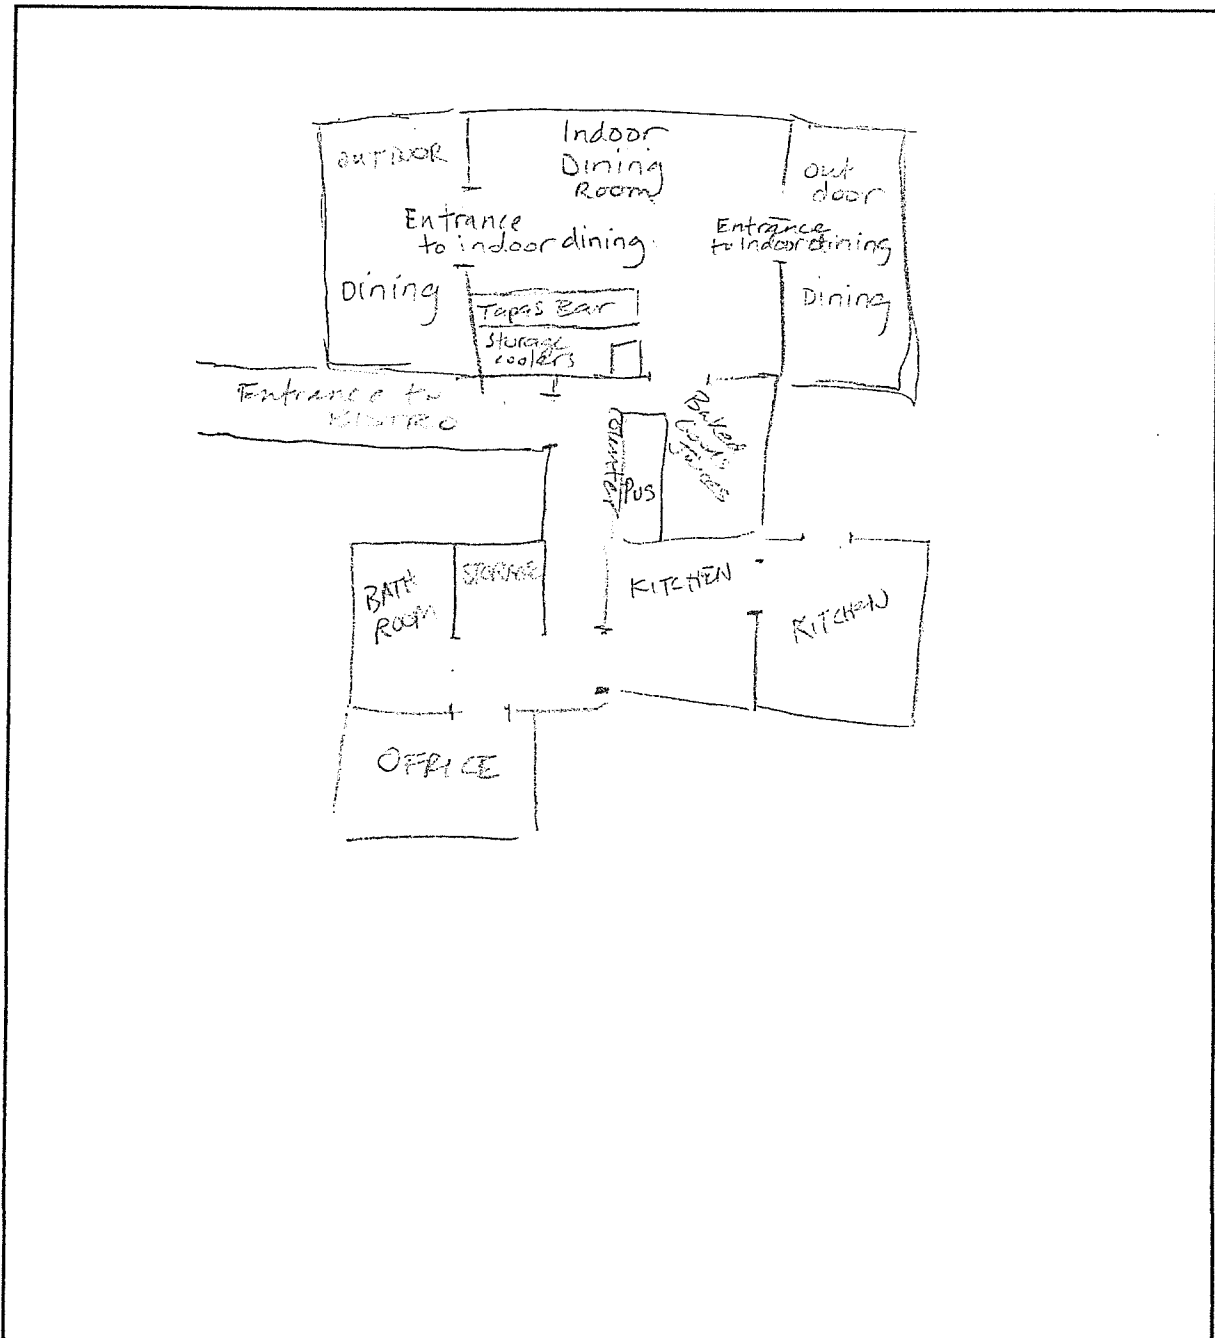 Indoor
Dining
Room
OUTDOOR
Out
door
Entrance
to indoor dining
Entrance
to Indoor dining
Dining
Dining
Tapas Bar
Storage
coolers
Entrance to
BISTRO
Counter
Baked
Juices
BATH
ROOM
STORAGE
KITCHEN
KITCHEN
OFFICE